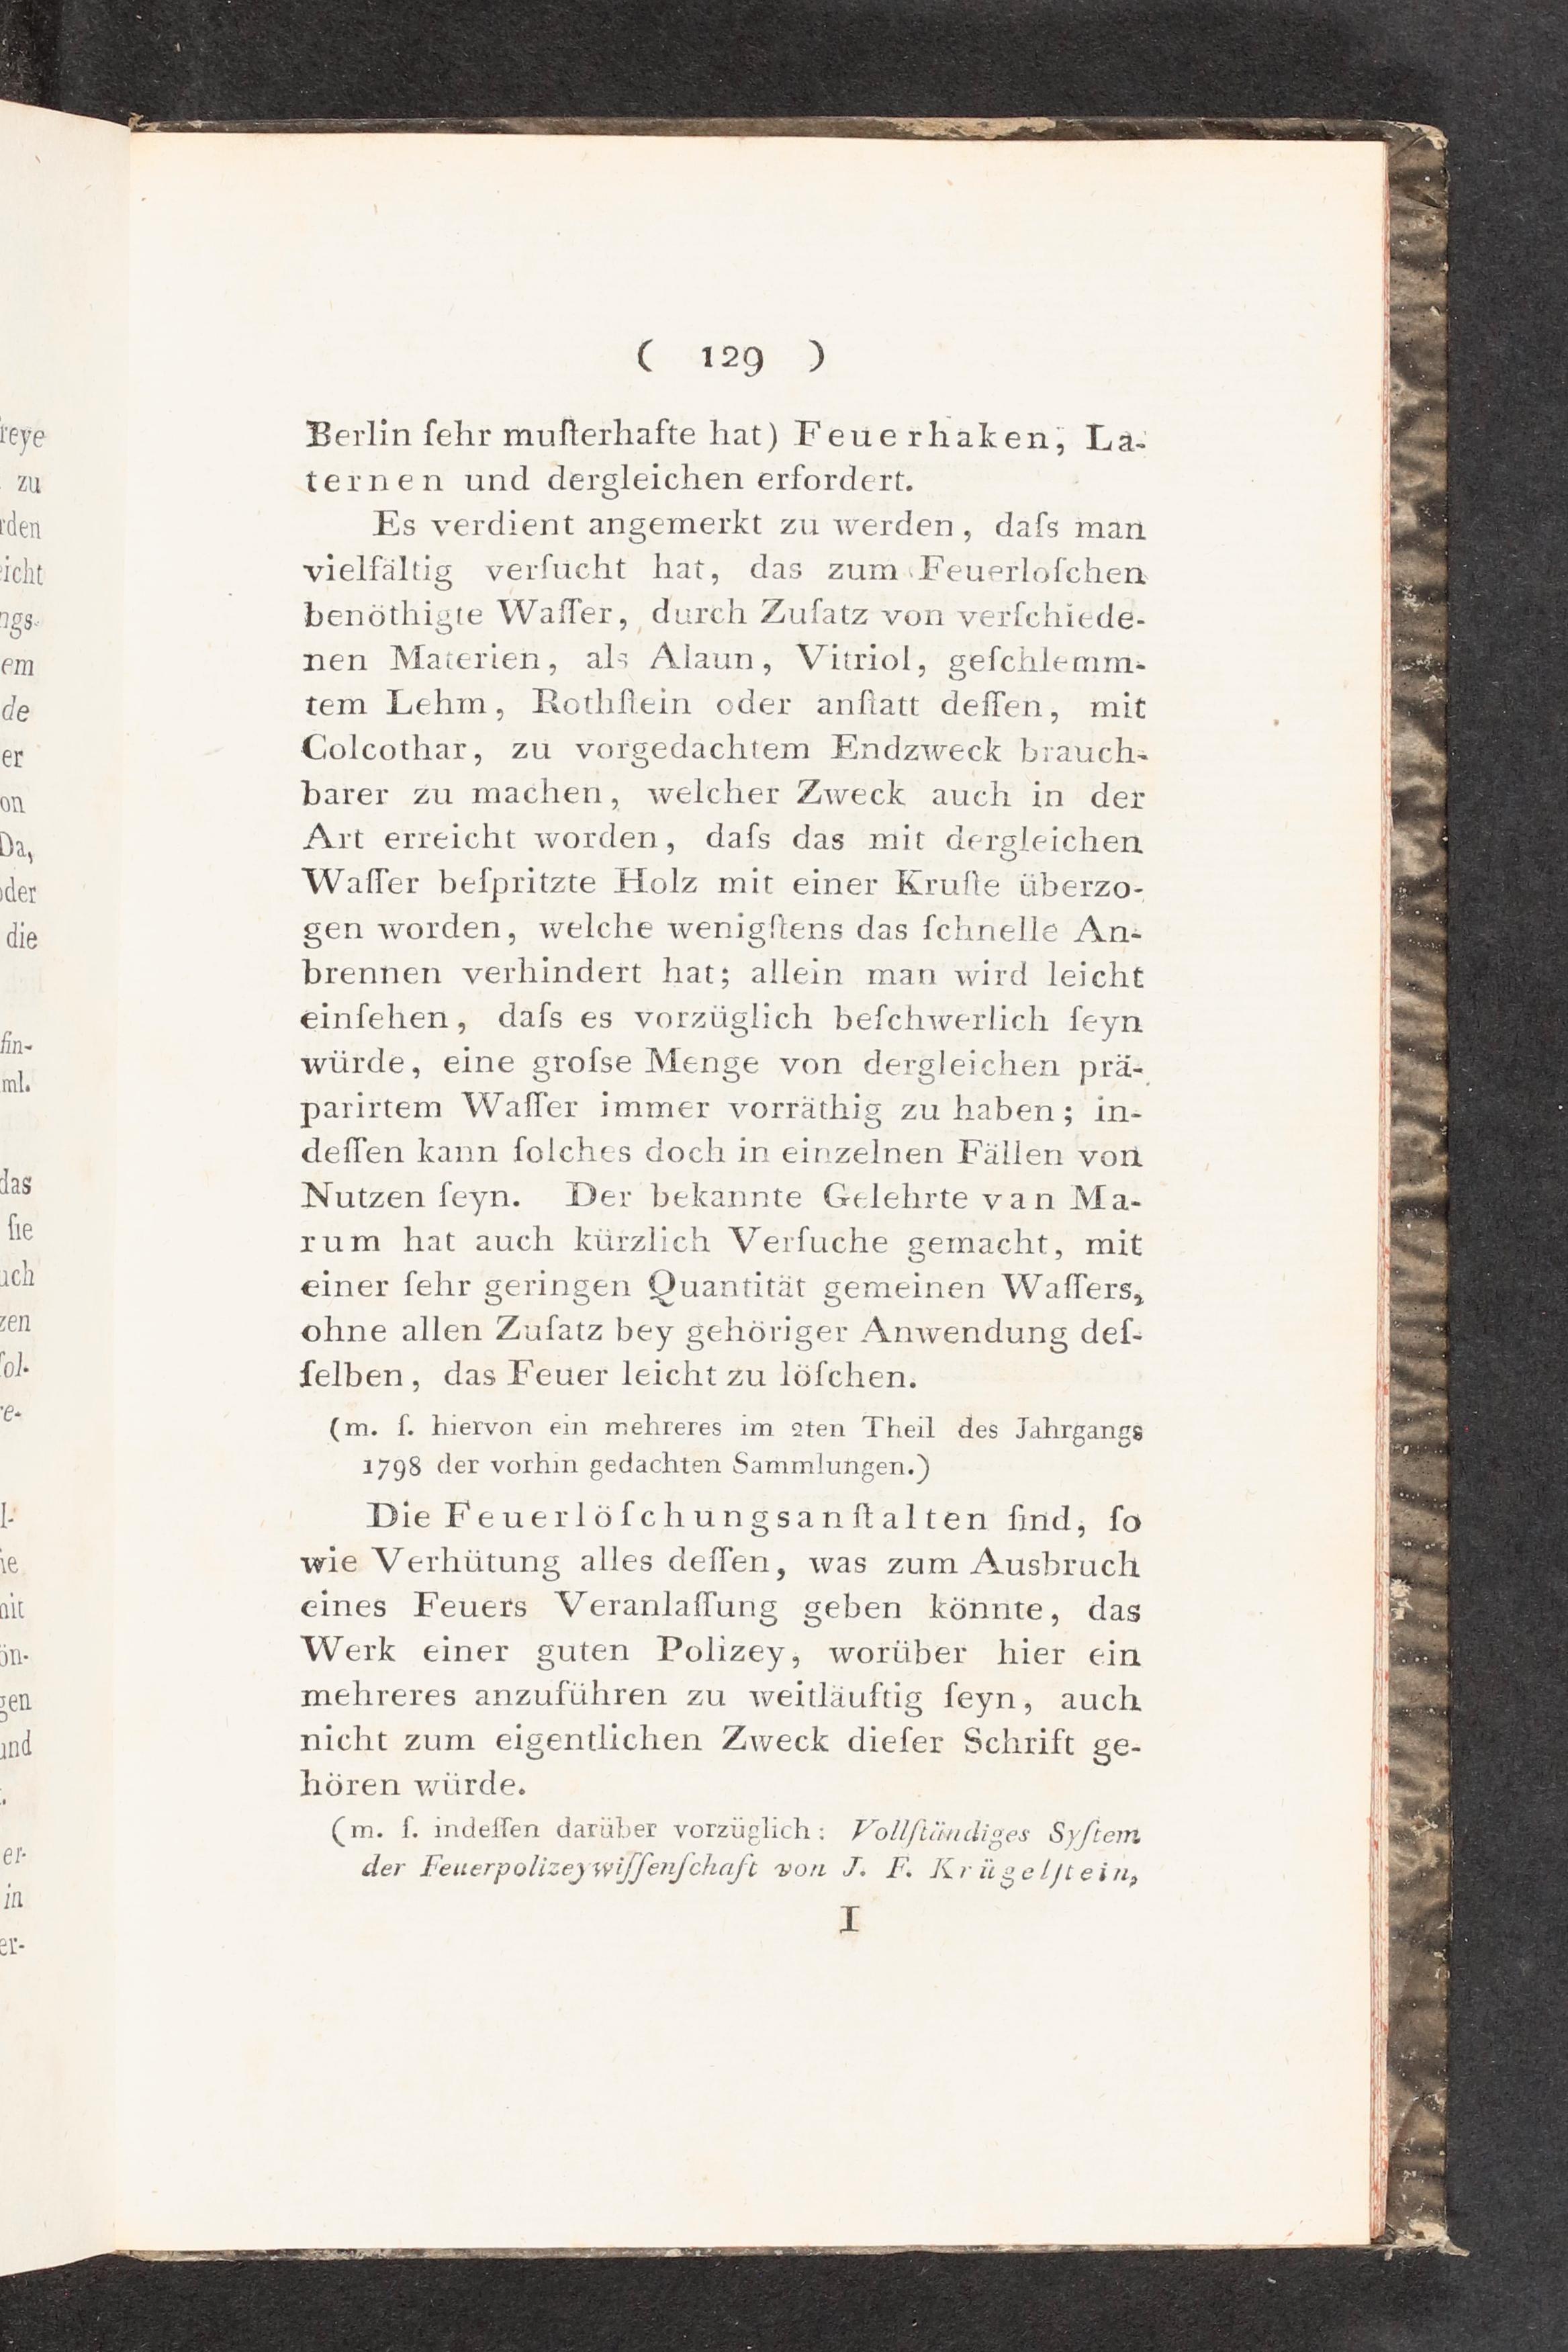 ( 129 )
Berlin ſehr muſterhafte hat) Feuerhaken, La-
ternen und dergleichen erfordert.
Es verdient angemerkt zu werden, daſs man
vielfältig verſucht hat, das zum Feuerloſchen
benöthigte Waſſer, durch Zuſatz von verſchiede-
nen Materien, als Alaun, Vitriol, geſchlemm-
tem Lehm, Rothſtein oder anſtatt deſſen, mit
Colcothar, zu vorgedachtem Endzweck brauch-
barer zu machen, welcher Zweck auch in der
Art erreicht worden, daſs das mit dergleichen
Waſſer beſpritzte Holz mit einer Kruſte überzo-
gen worden, welche wenigſtens das ſchnelle An-
brennen verhindert hat; allein man wird leicht
einſehen, daſs es vorzüglich beſchwerlich ſeyn
würde, eine groſse Menge von dergleichen prä-
parirtem Waſſer immer vorräthig zu haben; in-
deſſen kann ſolches doch in einzelnen Fällen von
Nutzen ſeyn. Der bekannte Gelehrte van Ma-
rum hat auch kürzlich Verſuche gemacht, mit
einer ſehr geringen Quantität gemeinen Waſſers,
ohne allen Zuſatz bey gehöriger Anwendung deſ-
ſelben, das Feuer leicht zu löſchen.
(m. ſ. hiervon ein mehreres im 2ten Theil des Jahrgangs
1798 der vorhin gedachten Sammlungen.)
Die Feuerlöſchungsanſtalten ſind, ſo
wie Verhütung alles deſſen, was zum Ausbruch
eines Feuers Veranlaſſung geben könnte, das
Werk einer guten Polizey, worüber hier ein
mehreres anzuführen zu weitläuftig ſeyn, auch
nicht zum eigentlichen Zweck dieſer Schrift ge-
hören würde.
(m. ſ. indeſſen darüber vorzüglich: Vollſtändiges Syſtem
der Feuerpolizeywiſſenſchaft von J. F. Krügelſtein,
I